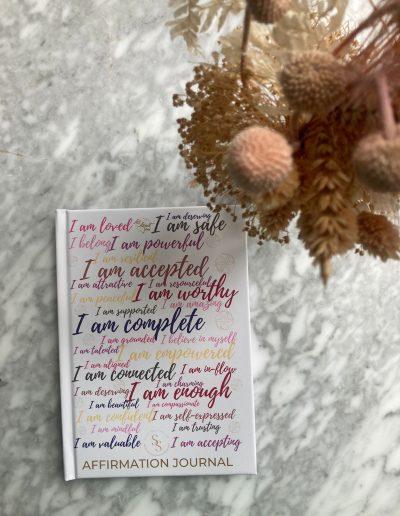 I am deserving
I am loved I am safe
I belong I am powerful
I am resilient
I am accepted
I am attractive I am resourceful
I am peaceful I am worthy
I am supported I am amazing
I am complete
I am grounded I believe in myself
I am talented I am empowered
I am aligned
I am connected I am in-flow
I am charming
I am deserving I am enough
I am beautiful I am compassionate
I am confident I am self-expressed
I am mindful I am trusting
I am valuable I am accepting
AFFIRMATION JOURNAL